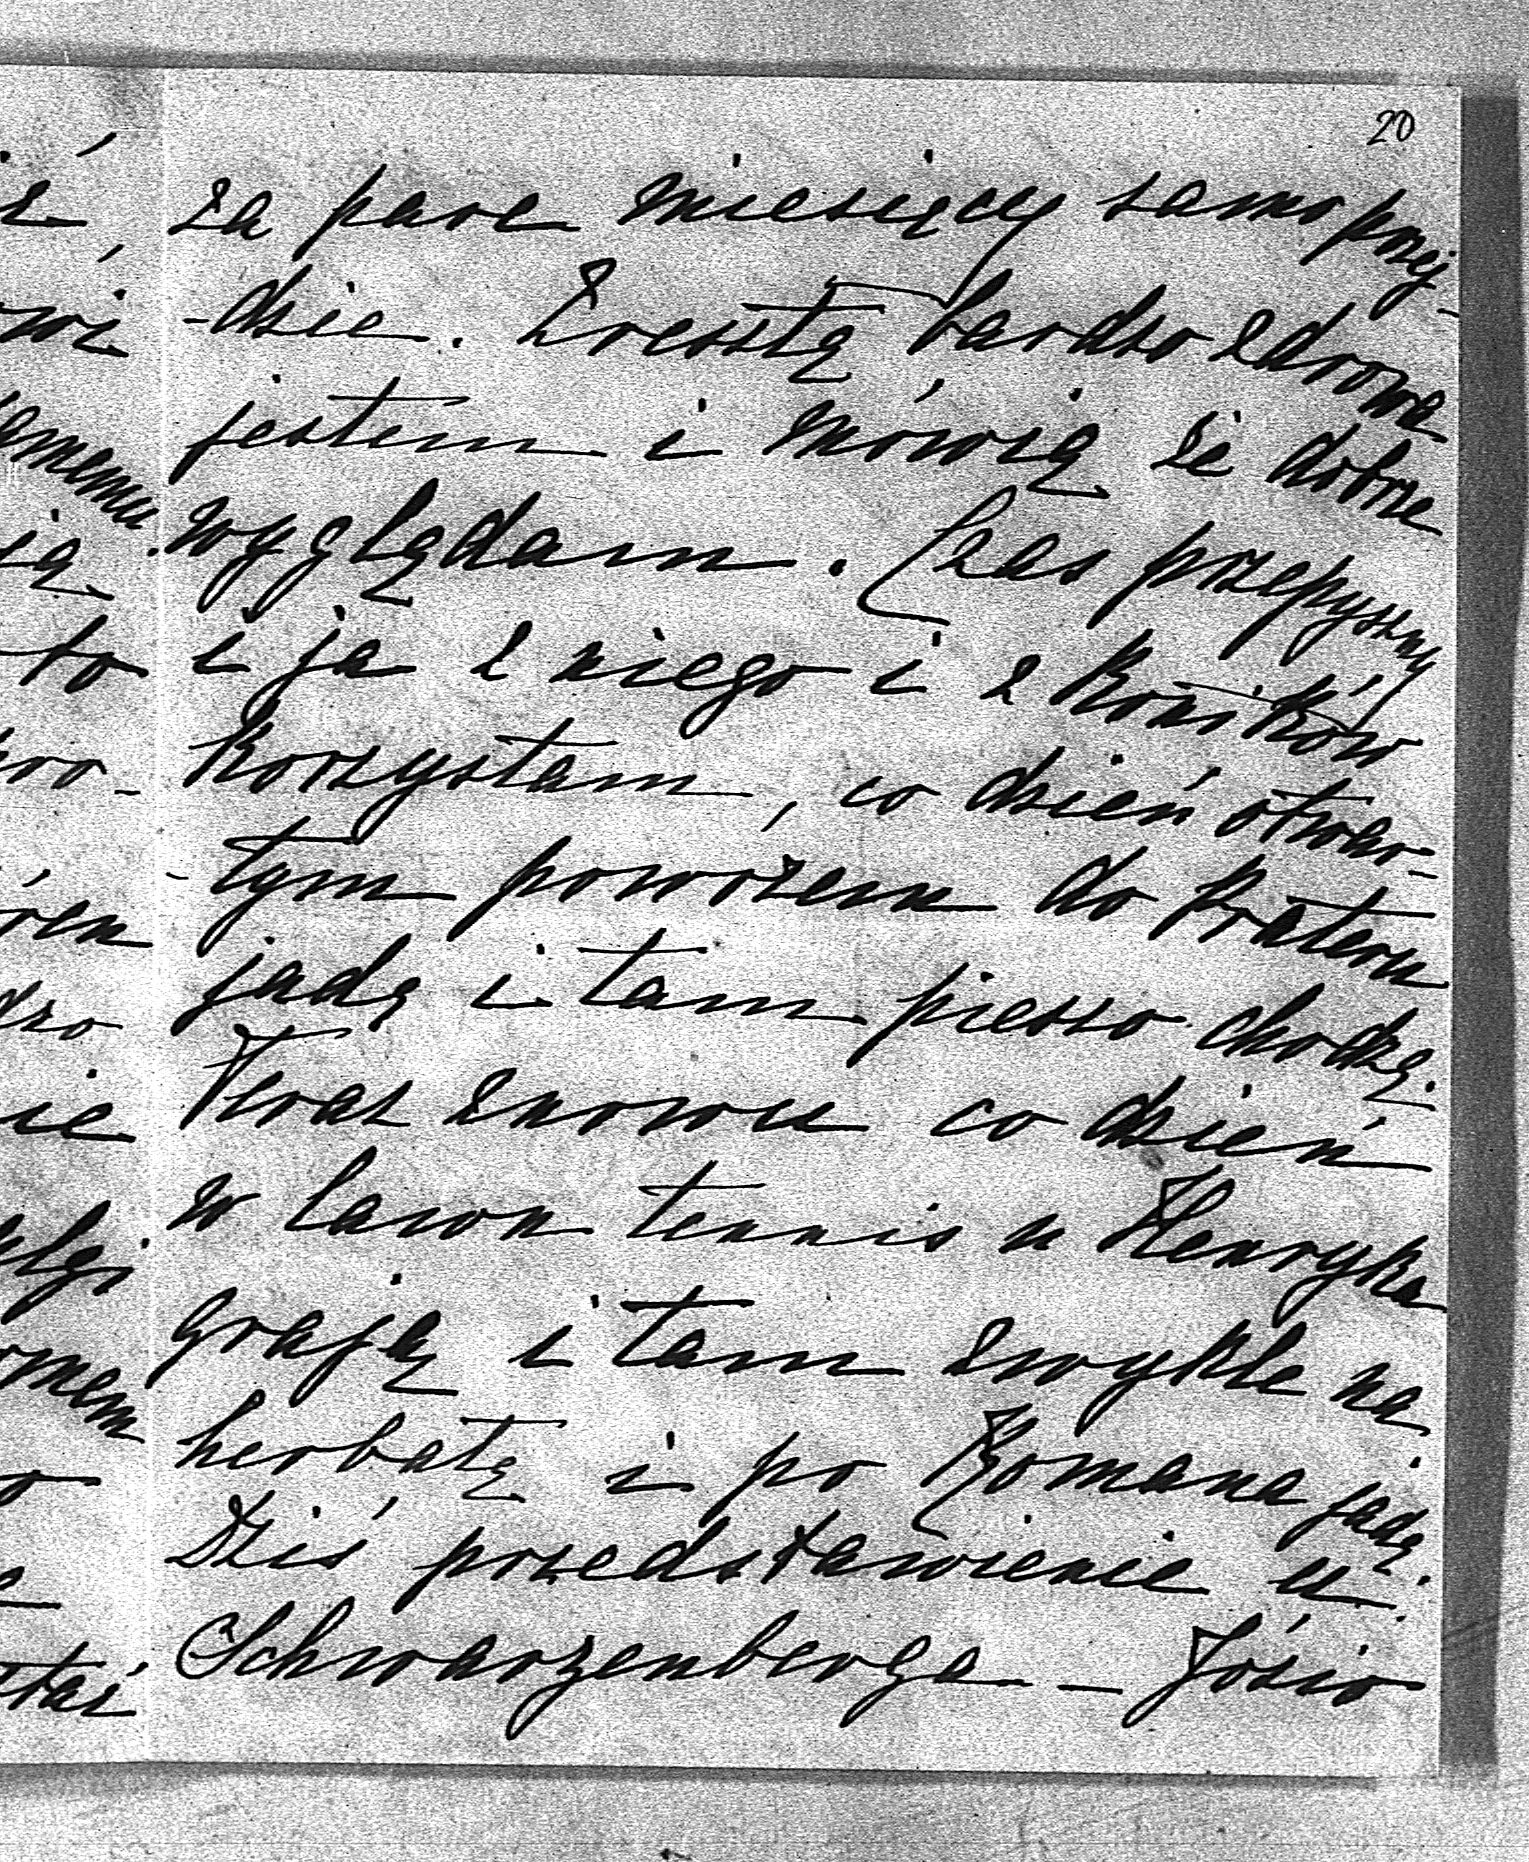 20
za parę miesięcy samo przej-
-dzie. Zresztą bardzo zdrowa
jestem i mówią że dobrze
wyglądam. Czas przepyszny
i ja z niego i z koników
korzystam, co dzień otwar-
-tym powozem do Prateru
jadę i tam pieszo chodzę.
Teraz znowu co dzień
w lawn tennis u Henryka
grają i tam zwykle na
herbatę i po Romana jadę.
Dziś przedstawienie u
Schwarzenberga – Józio